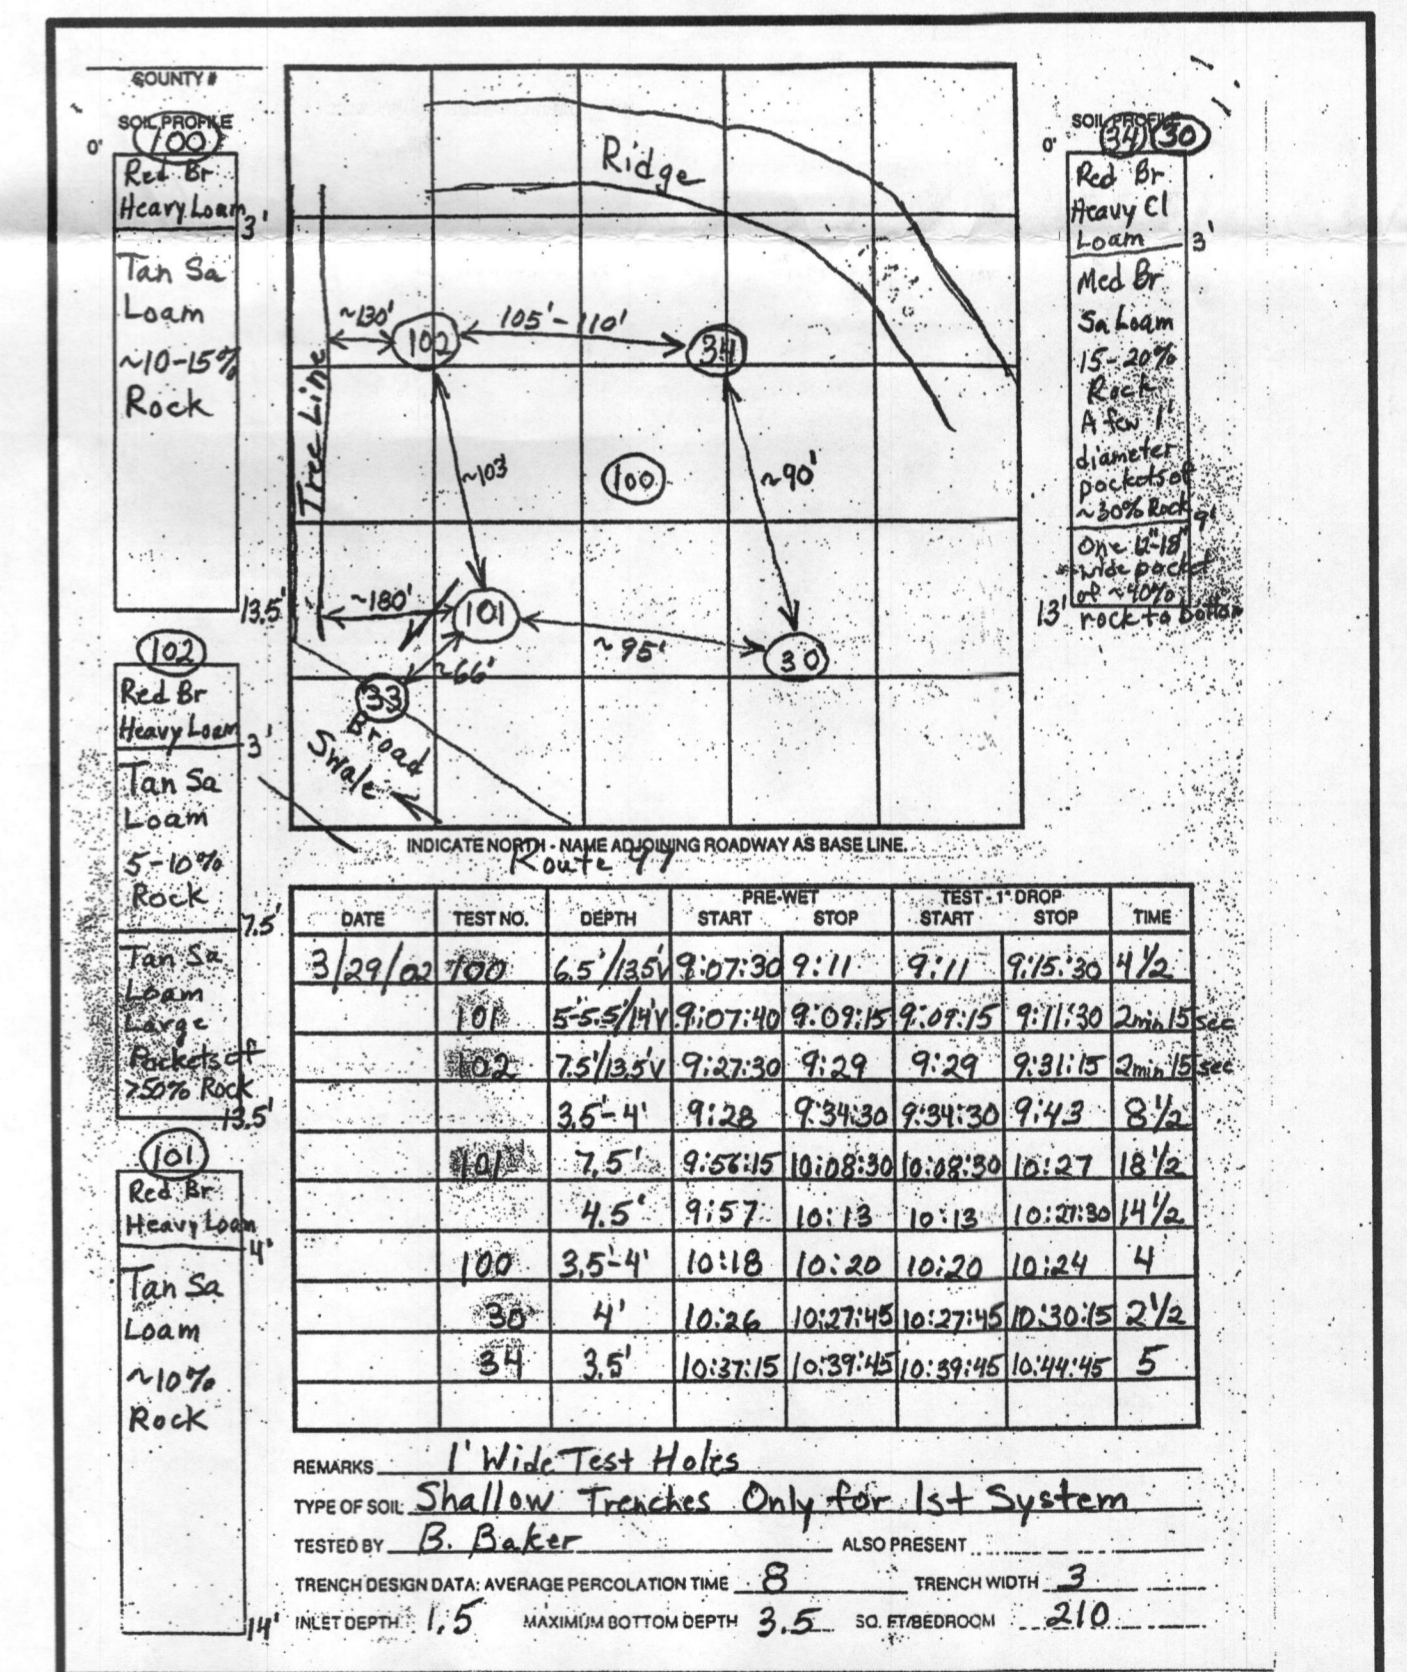 COUNTY #
SOIL PROFILE
100
0'
Red Br
Heavy Loam
3'
Tan Sa
Loam
~10-15%
Rock
13.5'
102
Red Br
Heavy Loam
3'
Tan Sa
Loam
5-10%
Rock
7.5'
Tan Sa
Loam
Large
Pockets of
>50% Rock
13.5'
101
Red Br
Heavy Loam
4'
Tan Sa
Loam
~10%
Rock
14'
Ridge
~130'
102
105'-110'
34
Tree Line
~103'
100
~90'
~180'
101
~95'
30
~66'
33
Broad
Swale
SOIL PROFILE
34 30
0'
Red Br
Heavy Cl
Loam
3'
Med Br
Sa Loam
15-20%
Rock
A few 1'
diameter
pockets of
~30% Rock
9'
One 12"-18"
wide pocket
of ~40%
13' rock to bottom
INDICATE NORTH - NAME ADJOINING ROADWAY AS BASE LINE.
Route 97
PRE-WET TEST - 1" DROP
DATE TEST NO. DEPTH START STOP START STOP TIME
3/29/02 100 6.5'/13.5'V 9:07:30 9:11 9:11 9:15:30 4 1/2
101 5'-5.5'/14'V 9:07:40 9:09:15 9:09:15 9:11:30 2min 15 sec
102 7.5'/13.5'V 9:27:30 9:29 9:29 9:31:15 2min 15 sec
3.5'-4' 9:28 9:34:30 9:34:30 9:43 8 1/2
101 7.5' 9:56:15 10:08:30 10:08:30 10:27 18 1/2
4.5' 9:57 10:13 10:13 10:27:30 14 1/2
100 3.5'-4' 10:18 10:20 10:20 10:24 4
30 4' 10:26 10:27:45 10:27:45 10:30:15 2 1/2
34 3.5' 10:37:15 10:39:45 10:39:45 10:44:45 5
REMARKS 1' Wide Test Holes
TYPE OF SOIL Shallow Trenches Only for 1st System
TESTED BY B. Baker ALSO PRESENT
TRENCH DESIGN DATA: AVERAGE PERCOLATION TIME 8 TRENCH WIDTH 3
INLET DEPTH 1.5 MAXIMUM BOTTOM DEPTH 3.5 SQ. FT/BEDROOM 210